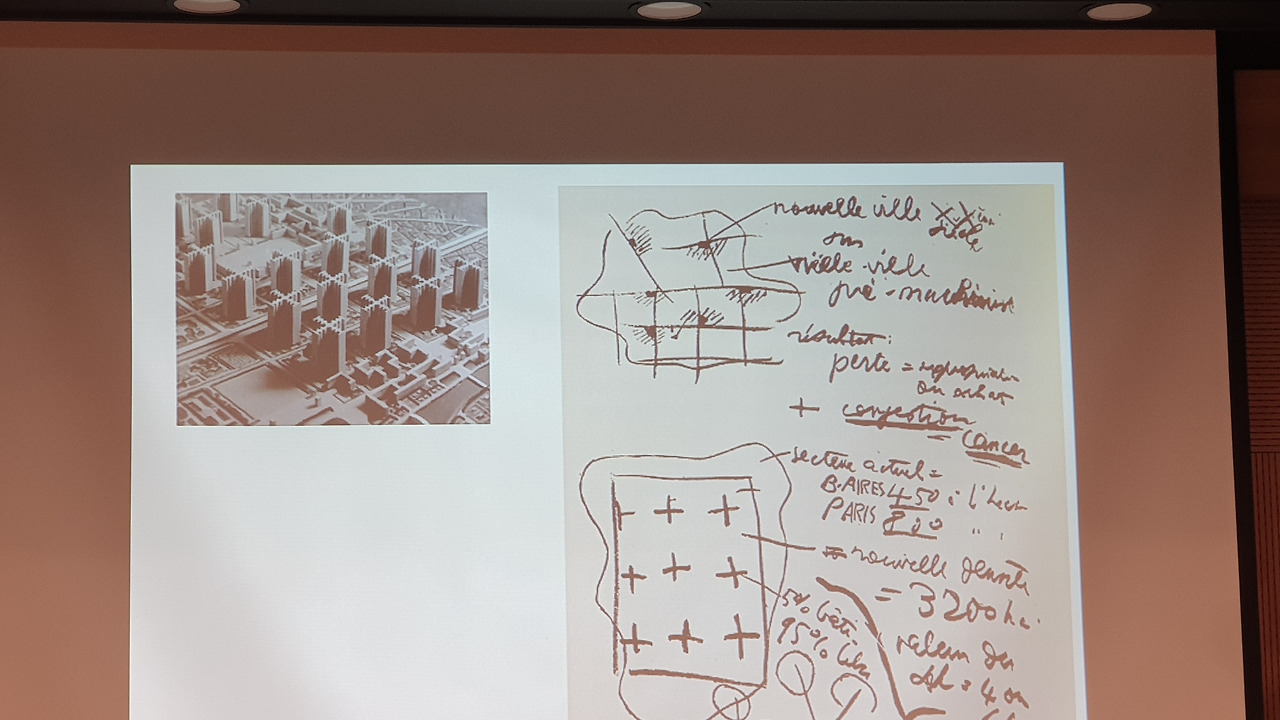 nouvelle ville XX
siècle
sur
vieille ville
pré-machiniste
résultat:
perte =
ou achat
+ congestion
= cancer
secteur actuel =
B.AIRES 450 à l'hect
PARIS 800 " "
= nouvelle densité
= 3200 h
5% bâti
95% libre
valeur du
= 4 ou